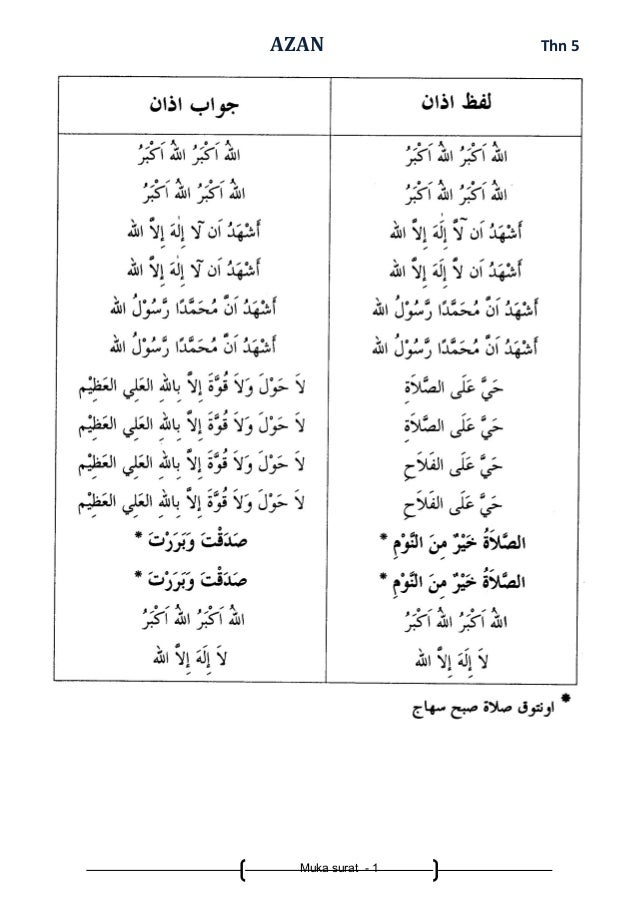 AZAN Thn 5
لفظ اذان جواب اذان
اللهُ اَكْبَرُ اللهُ اَكْبَرُ اللهُ اَكْبَرُ اللهُ اَكْبَرُ
اللهُ اَكْبَرُ اللهُ اَكْبَرُ اللهُ اَكْبَرُ اللهُ اَكْبَرُ
أَشْهَدُ اَن لآَّ إِلَهَ إِلاَّ الله أَشْهَدُ اَن لآ إِلٰهَ إِلاَّ الله
أَشْهَدُ اَن لاَّ إِلَهَ إِلاَّ الله أَشْهَدُ اَن لآ إِلٰهَ إِلاَّ الله
أَشْهَدُ اَنَّ مُحَمَّدًا رَّسُوْلُ الله أَشْهَدُ اَنَّ مُحَمَّدًا رَّسُوْلُ الله
أَشْهَدُ اَنَّ مُحَمَّدًا رَّسُوْلُ الله أَشْهَدُ اَنَّ مُحَمَّدًا رَّسُوْلُ الله
حَيَّ عَلَى الصَّلاَةِ لاَ حَوْلَ وَلاَ قُوَّةَ إِلاَّ بِاللهِ العَلِي العَظِيْم
حَيَّ عَلَى الصَّلاَةِ لاَ حَوْلَ وَلاَ قُوَّةَ إِلاَّ بِاللهِ العَلِي العَظِيْم
حَيَّ عَلَى الفَلاَحِ لاَ حَوْلَ وَلاَ قُوَّةَ إِلاَّ بِاللهِ العَلِي العَظِيْم
حَيَّ عَلَى الفَلاَحِ لاَ حَوْلَ وَلاَ قُوَّةَ إِلاَّ بِاللهِ العَلِي العَظِيْم
الصَّلاَةُ خَيْرٌ مِنَ النَّوْمِ * صَدَقْتَ وَبَرَرْتَ *
الصَّلاَةُ خَيْرٌ مِنَ النَّوْمِ * صَدَقْتَ وَبَرَرْتَ *
اللهُ اَكْبَرُ اللهُ اَكْبَرُ اللهُ اَكْبَرُ اللهُ اَكْبَرُ
لاَ إِلَهَ إِلاَّ الله لاَ إِلَهَ إِلاَّ الله
* اونتوق صلاة صبح سهاج
Muka surat - 1